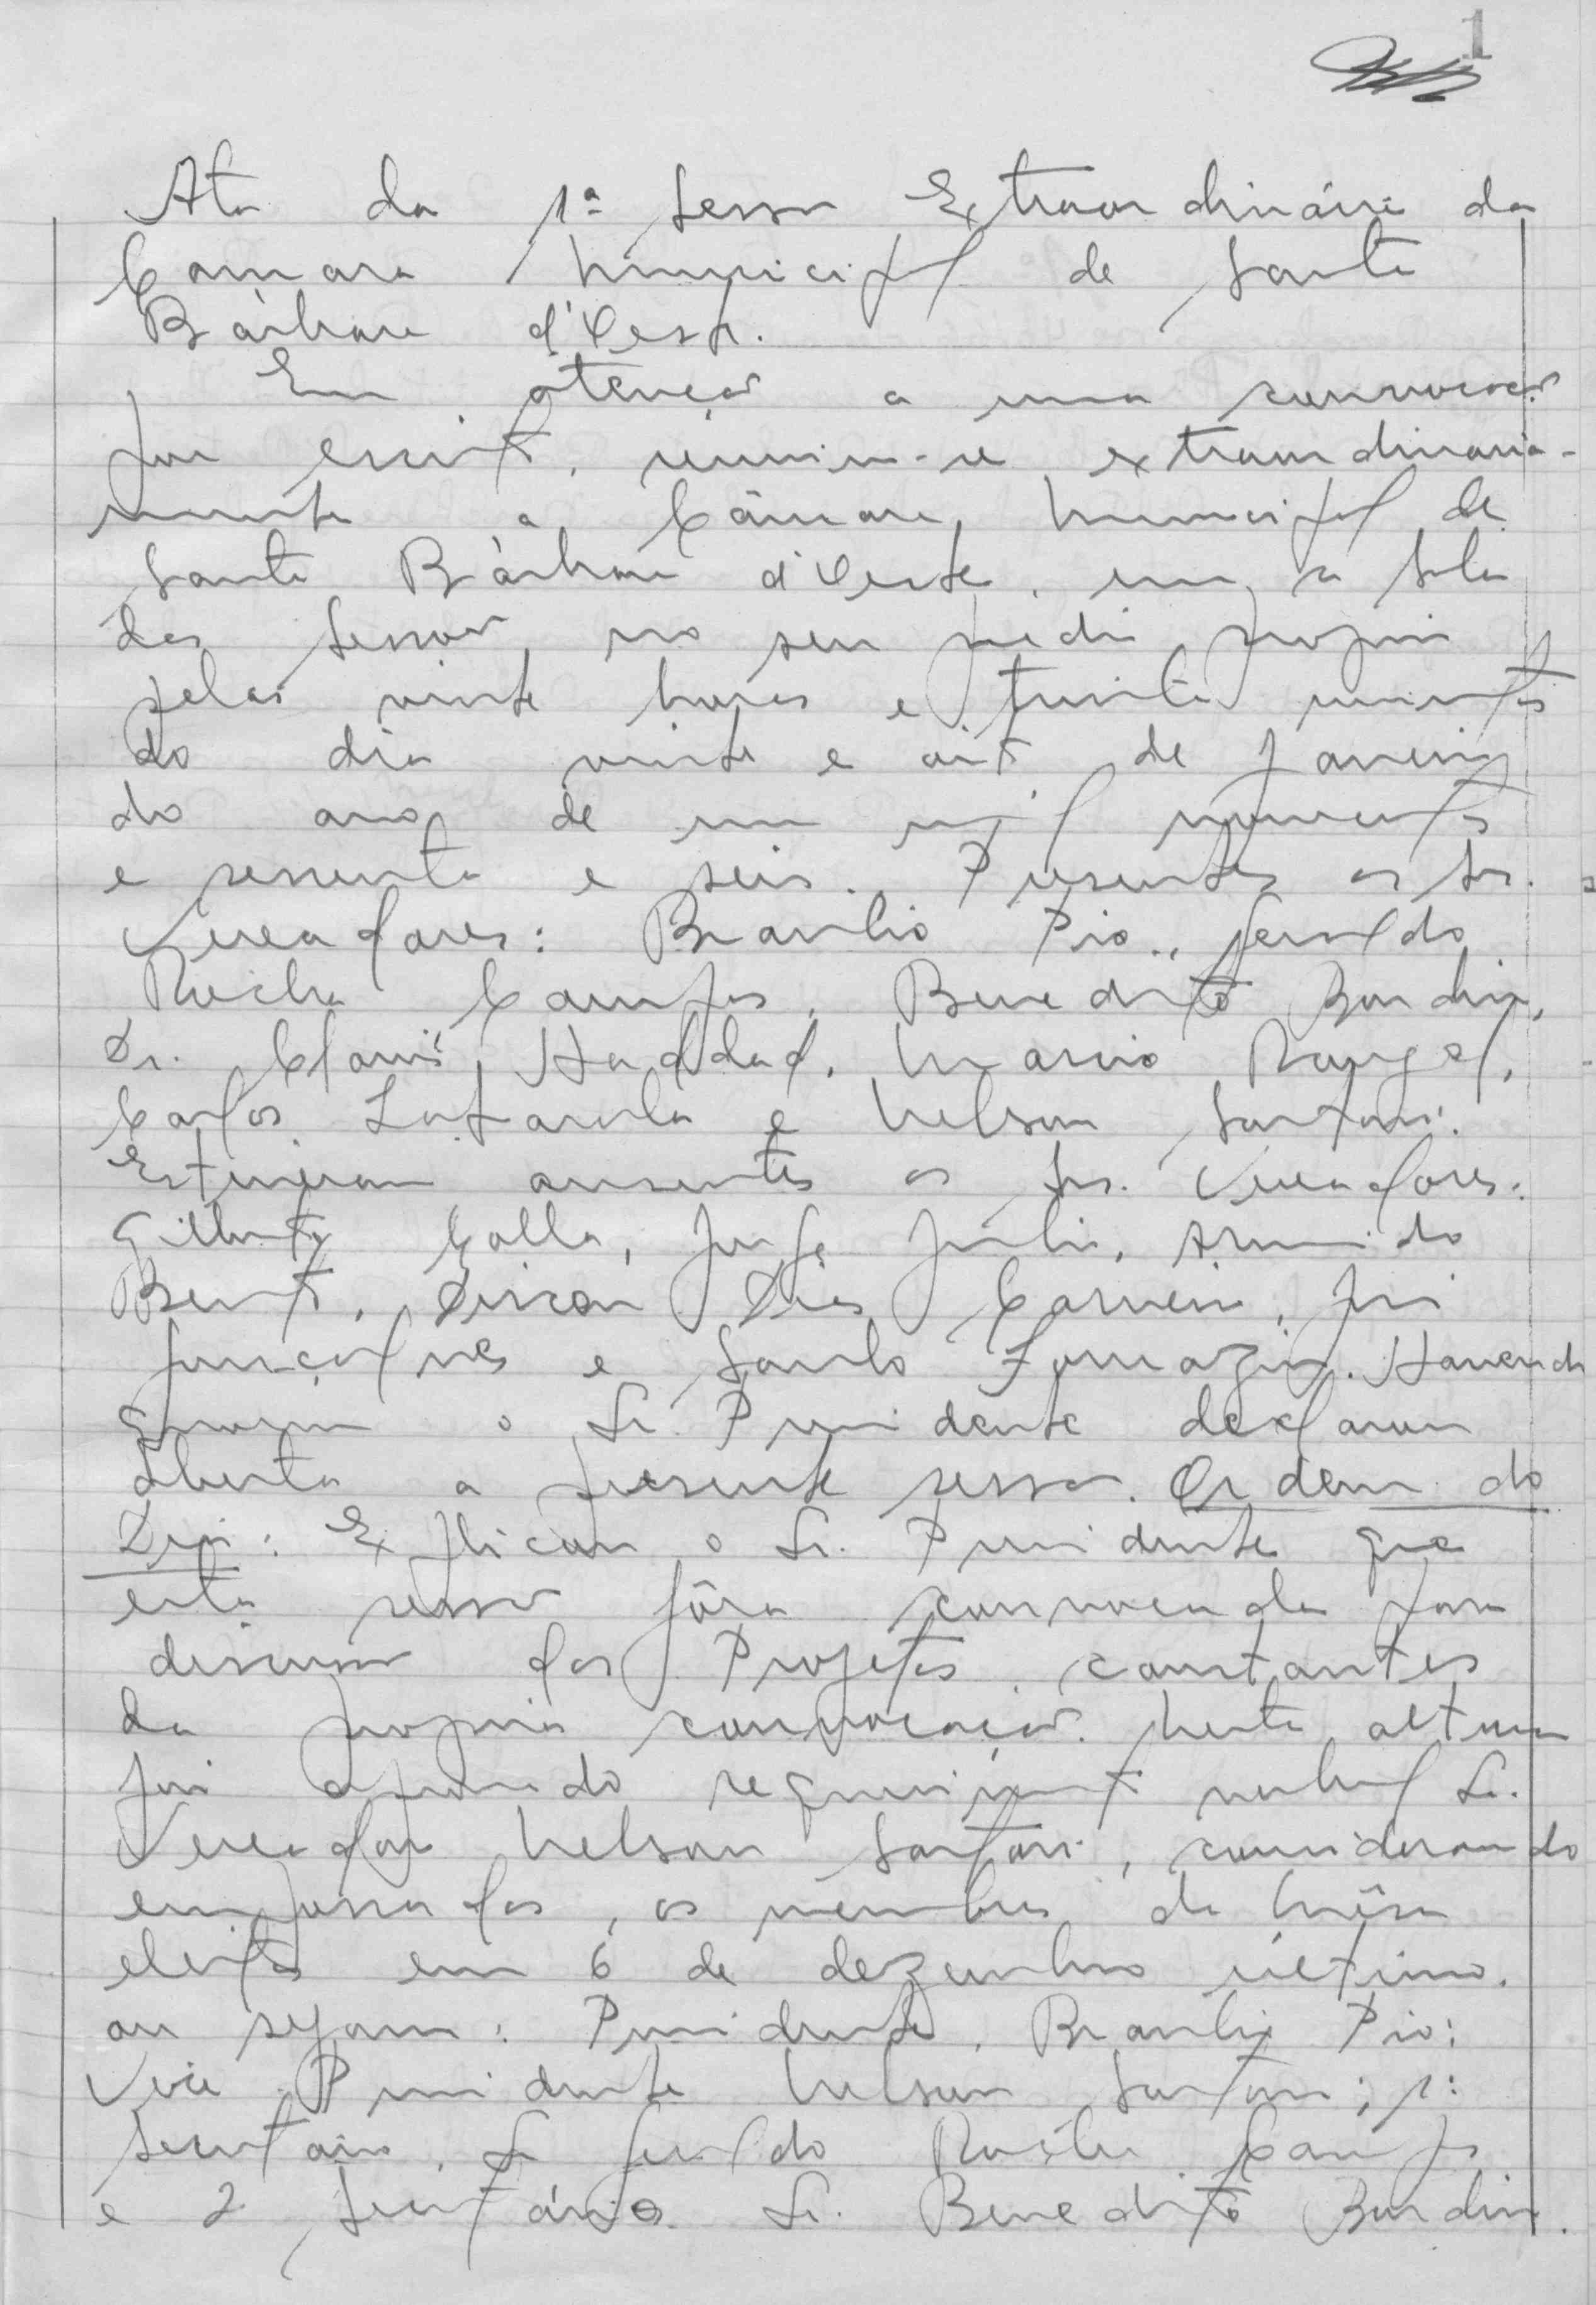 1
Ata da 1ª Sessão Extraordinária da
Câmara Municipal de Santa
Bárbara d'Oeste.
Em atenção a uma convocação
por escrito, reuniu-se extraordinaria-
mente a Câmara Municipal de
Santa Bárbara d'Oeste, em a Sala
das Sessões, no seu predio proprio
pelas vinte horas e trinta minutos
do dia vinte e oito de Janeiro
do ano de um mil novecentos
e sessenta e seis. Presentes os Srs.
Vereadores: Braulio Pio, Geraldo
Rocha Campos, Benedito Bordin,
Dr. Chafic Haddad, Mario Rangel,
Carlos Lazarola e Nelson Sartori.
Estiveram ausentes os Srs. Vereadores:
Gilberto Galla, Jorge Julio, Arnaldo
Bento, Dirceu Dias Carneiro, José
Gonçalves e Santo Fornazin. Havendo
o Sr. Presidente declarou
aberta a presente sessão. Ordem do
Dia: Explicou o Sr. Presidente que
esta sessão fôra convocada para
discussão dos Projetos constantes
da propria convocação. Nesta altura
foi aprovado requerimento verbal Sr.
Vereador Nelson Sartori, considerando
empossados, os membros da Mêsa
eleita em 6 de dezembro último.
ou sejam: Presidente, Braulio Pio;
Vice Presidente Nelson Sartori; 1º
Secretario, Sr Geraldo Rocha Campos
e 2 Secretário Sr. Benedito Bordin.